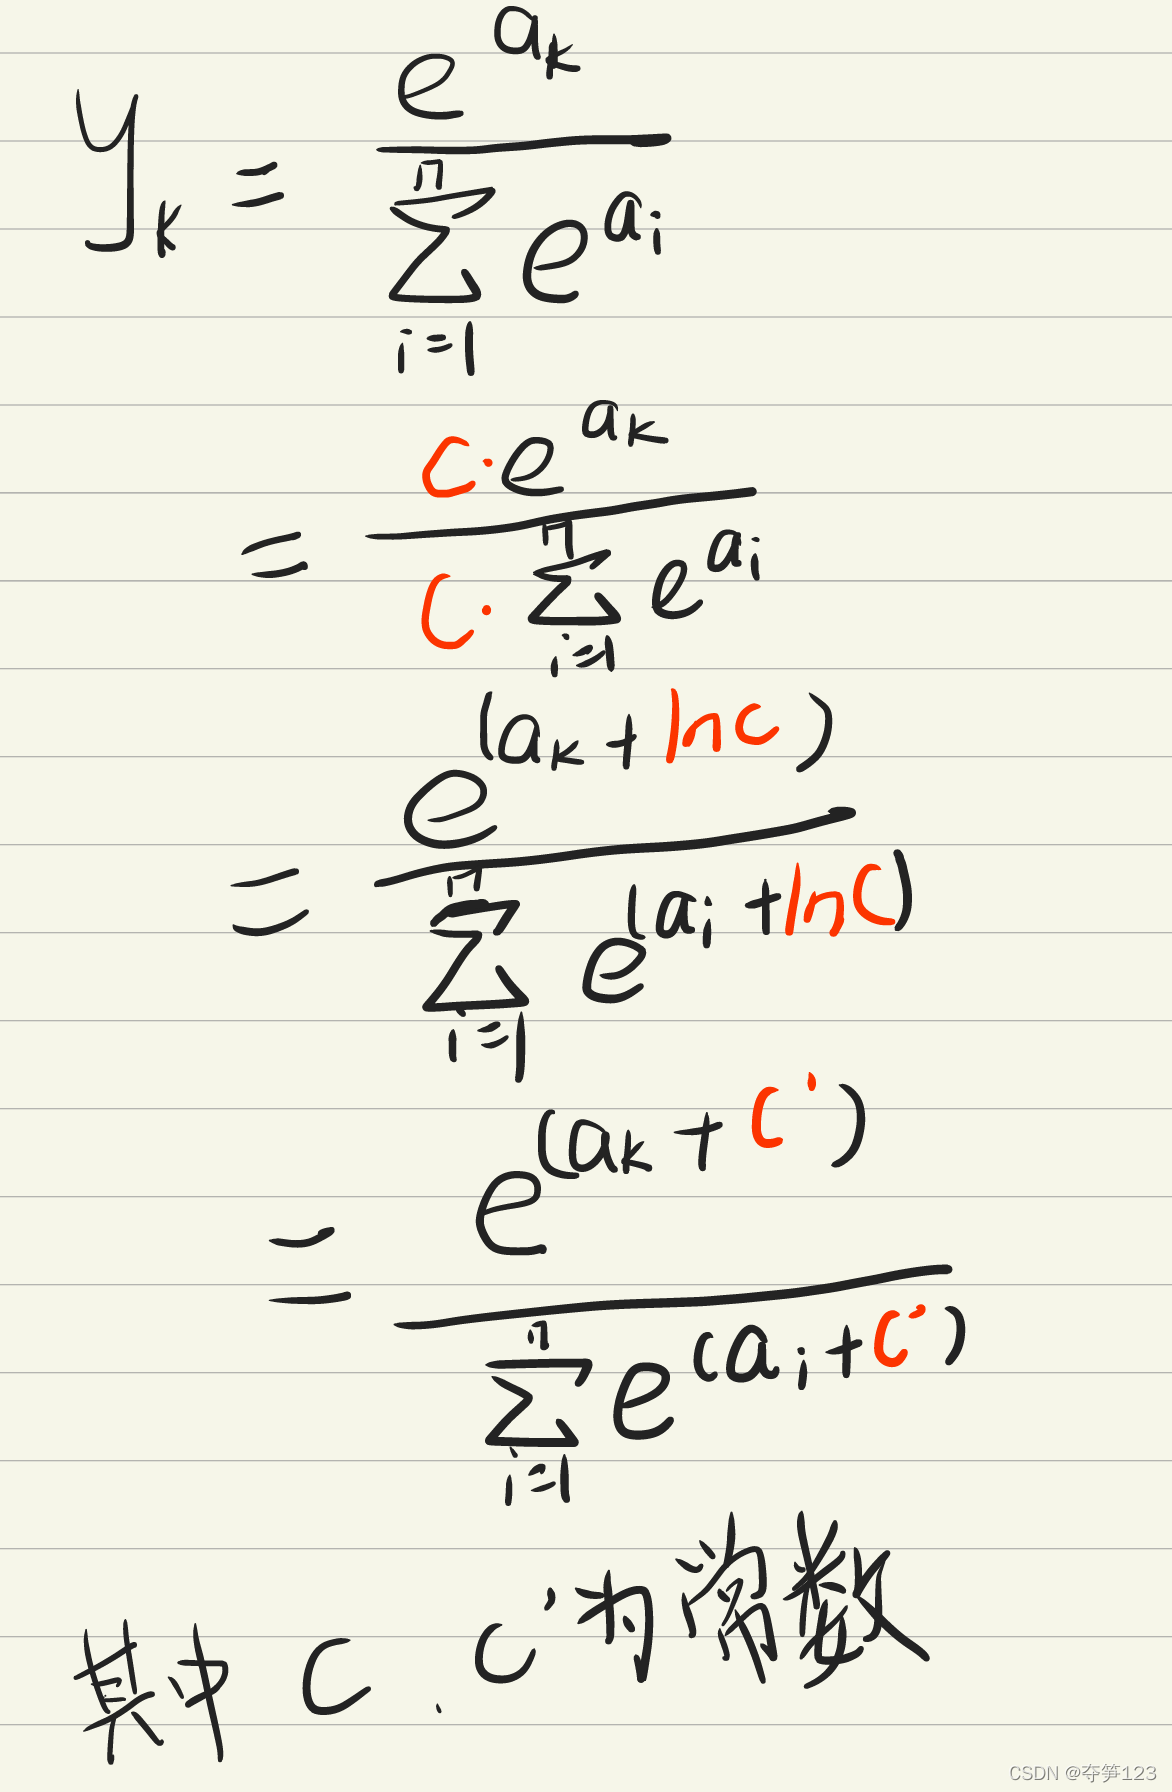 y_k = \frac{e^{a_k}}{\sum_{i=1}^{n} e^{a_i}}
= \frac{C \cdot e^{a_k}}{C \cdot \sum_{i=1}^{n} e^{a_i}}
= \frac{e^{(a_k + \ln C)}}{\sum_{i=1}^{n} e^{(a_i + \ln C)}}
= \frac{e^{(a_k + C')}}{\sum_{i=1}^{n} e^{(a_i + C')}}
其中 C、C' 为常数
CSDN @夺笋123